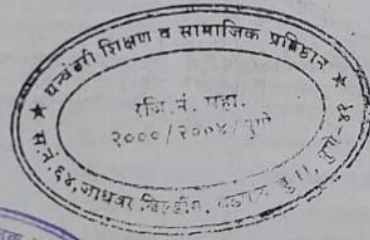 ★ धन्वंतरी शिक्षण व सामाजिक प्रतिष्ठान ★
रजि. नं. महा.
२०००/२००४/पुणे
स.नं. ६४, जाधवर बिल्डींग, वडगांव बु॥, पुणे-४१